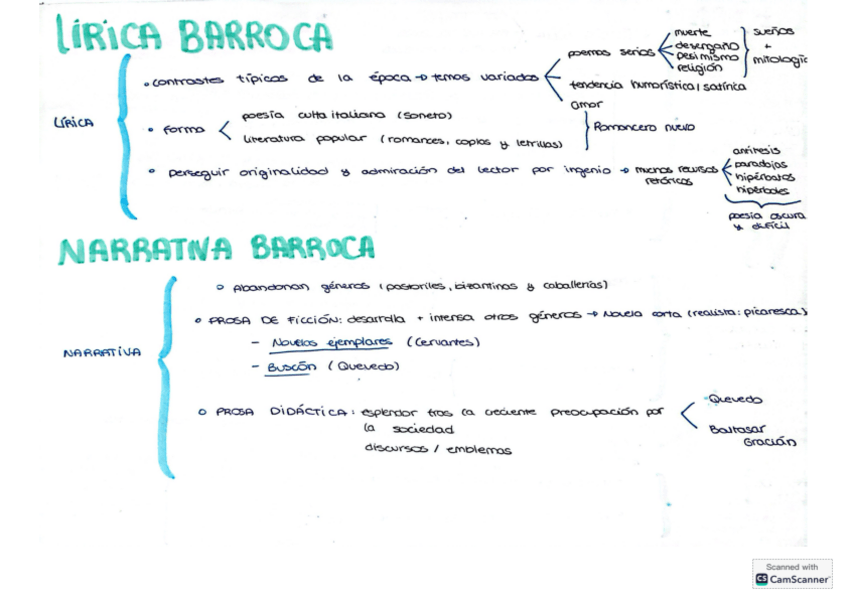 LÍRICA BARROCA
LÍRICA
• contrastes típicos de la época → temas variados
poemas serios
muerte
desengaño
pesimismo
religión
sueños
+
mitología
tendencia humorística / satírica
amor
• forma
poesía culta italiana (soneto)
literatura popular (romances, coplas y letrillas)
Romancero nuevo
• perseguir originalidad y admiración del lector por ingenio → muchos recursos
retóricos
antítesis
paradojas
hipérbatos
hipérboles
poesía oscura
y difícil
NARRATIVA BARROCA
NARRATIVA
○ Abandonan géneros (pastoriles, bizantinas y caballerías)
○ PROSA DE FICCIÓN: desarrolla + intensa otros géneros → Novela corta (realista: picaresca)
- Novelas ejemplares (Cervantes)
- Buscón (Quevedo)
○ PROSA DIDÁCTICA: esplendor tras la creciente preocupación por
la sociedad
discursos / emblemas
Quevedo
Baltasar
Gracián
Scanned with
CS CamScanner